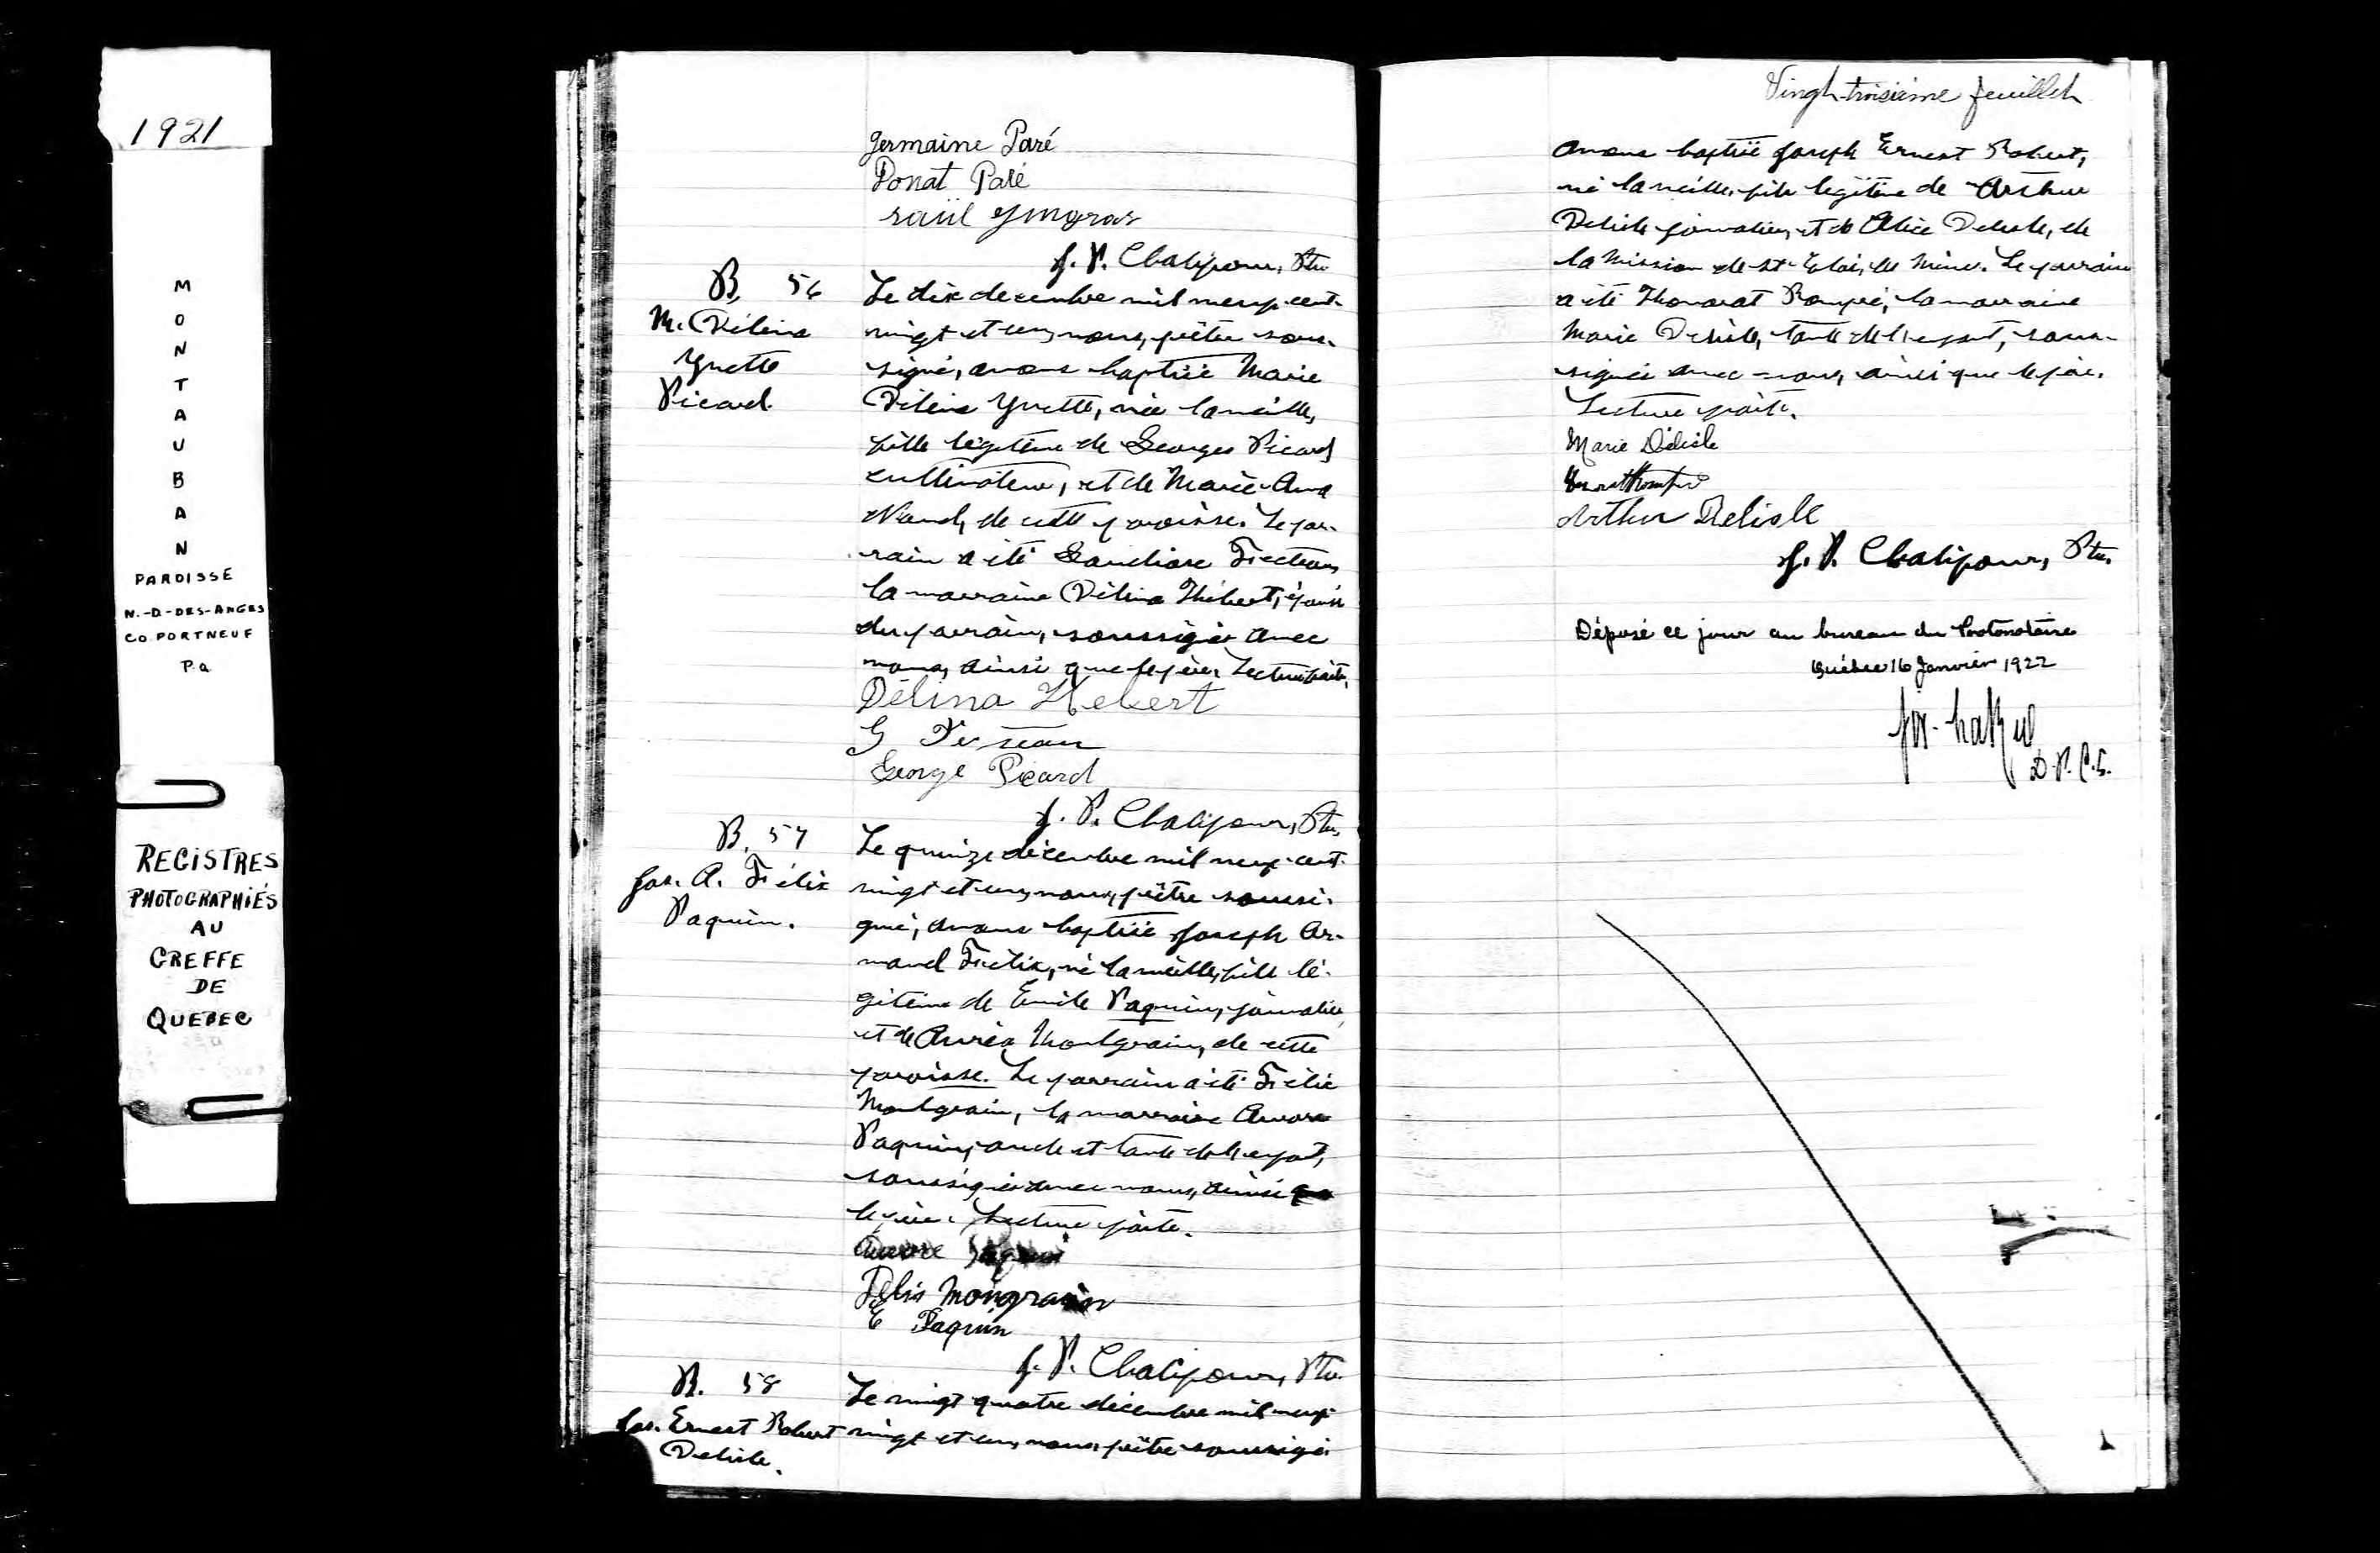 1921
M
O
N
T
A
U
B
A
N
PAROISSE
N.-D.-DES-ANGES
CO. PORTNEUF
P.Q.
REGISTRES
PHOTOGRAPHIÉS
AU
GREFFE
DE
QUEBEC
Germaine Paré
Donat Paré
Raül Gingras
J. P. Chalifour, Ptre
B. 56
M. Délina
Yvette
Picard.
Le dix decembre mil neuf cent-
vingt et un, nous, prêtre sous-
signé, avons baptisé Marie
Délina Yvette, née la veille,
fille légitime de Georges Picard
cultivateur, et de Marie-Anna
de cette paroisse. Le par-
rain a été Gaudiose Fecteau,
la marraine Délina Hébert, épouse
du parrain, soussignés avec
nous, ainsi que le père. Lecture faite.
Délina Hebert
G
George Picard
J. P. Chalifour, Ptre
B. 57
Jos. A. Félix
Paquin.
Le quinze décembre mil neuf-cent-
vingt et un, nous, prêtre soussi-
gné, avons baptisé Joseph Ar-
mand Félix, né la veille, fils lé-
gitime de Emile Paquin, journalier,
et de Auréa Montgrain, de cette
paroisse. Le parrain a été Félix
Montgrain, la marraine Aurore
Paquin, oncle et tante de l'enfant,
soussignés avec nous, ainsi que
le père. Lecture faite.
Aurore Paquin
Félis Mongrain
E Paquin
J. P. Chalifour, Ptre
B. 58
Jos. Ernest Robert
Delisle.
Le vingt quatre décembre mil neuf
vingt et un, nous, prêtre soussigné
Vingt-troisième feuillet
avons baptisé Joseph Ernest Robert,
né la veille, fils légitime de Arthur
Delisle journalier, et de Alice Delisle, de
la Mission de St-Eloi, les Mines. Le parrain
a été Honorat Rompré, la marraine
Marie Delisle, tante de l'enfant, sous-
signés avec nous, ainsi que le père.
Lecture faite.
Marie Délisle
Arthur Delisle
J. P. Chalifour, Ptre
Déposé ce jour au bureau du Protonotaire
Québec 16 Janvier 1922
D. P. C. S.